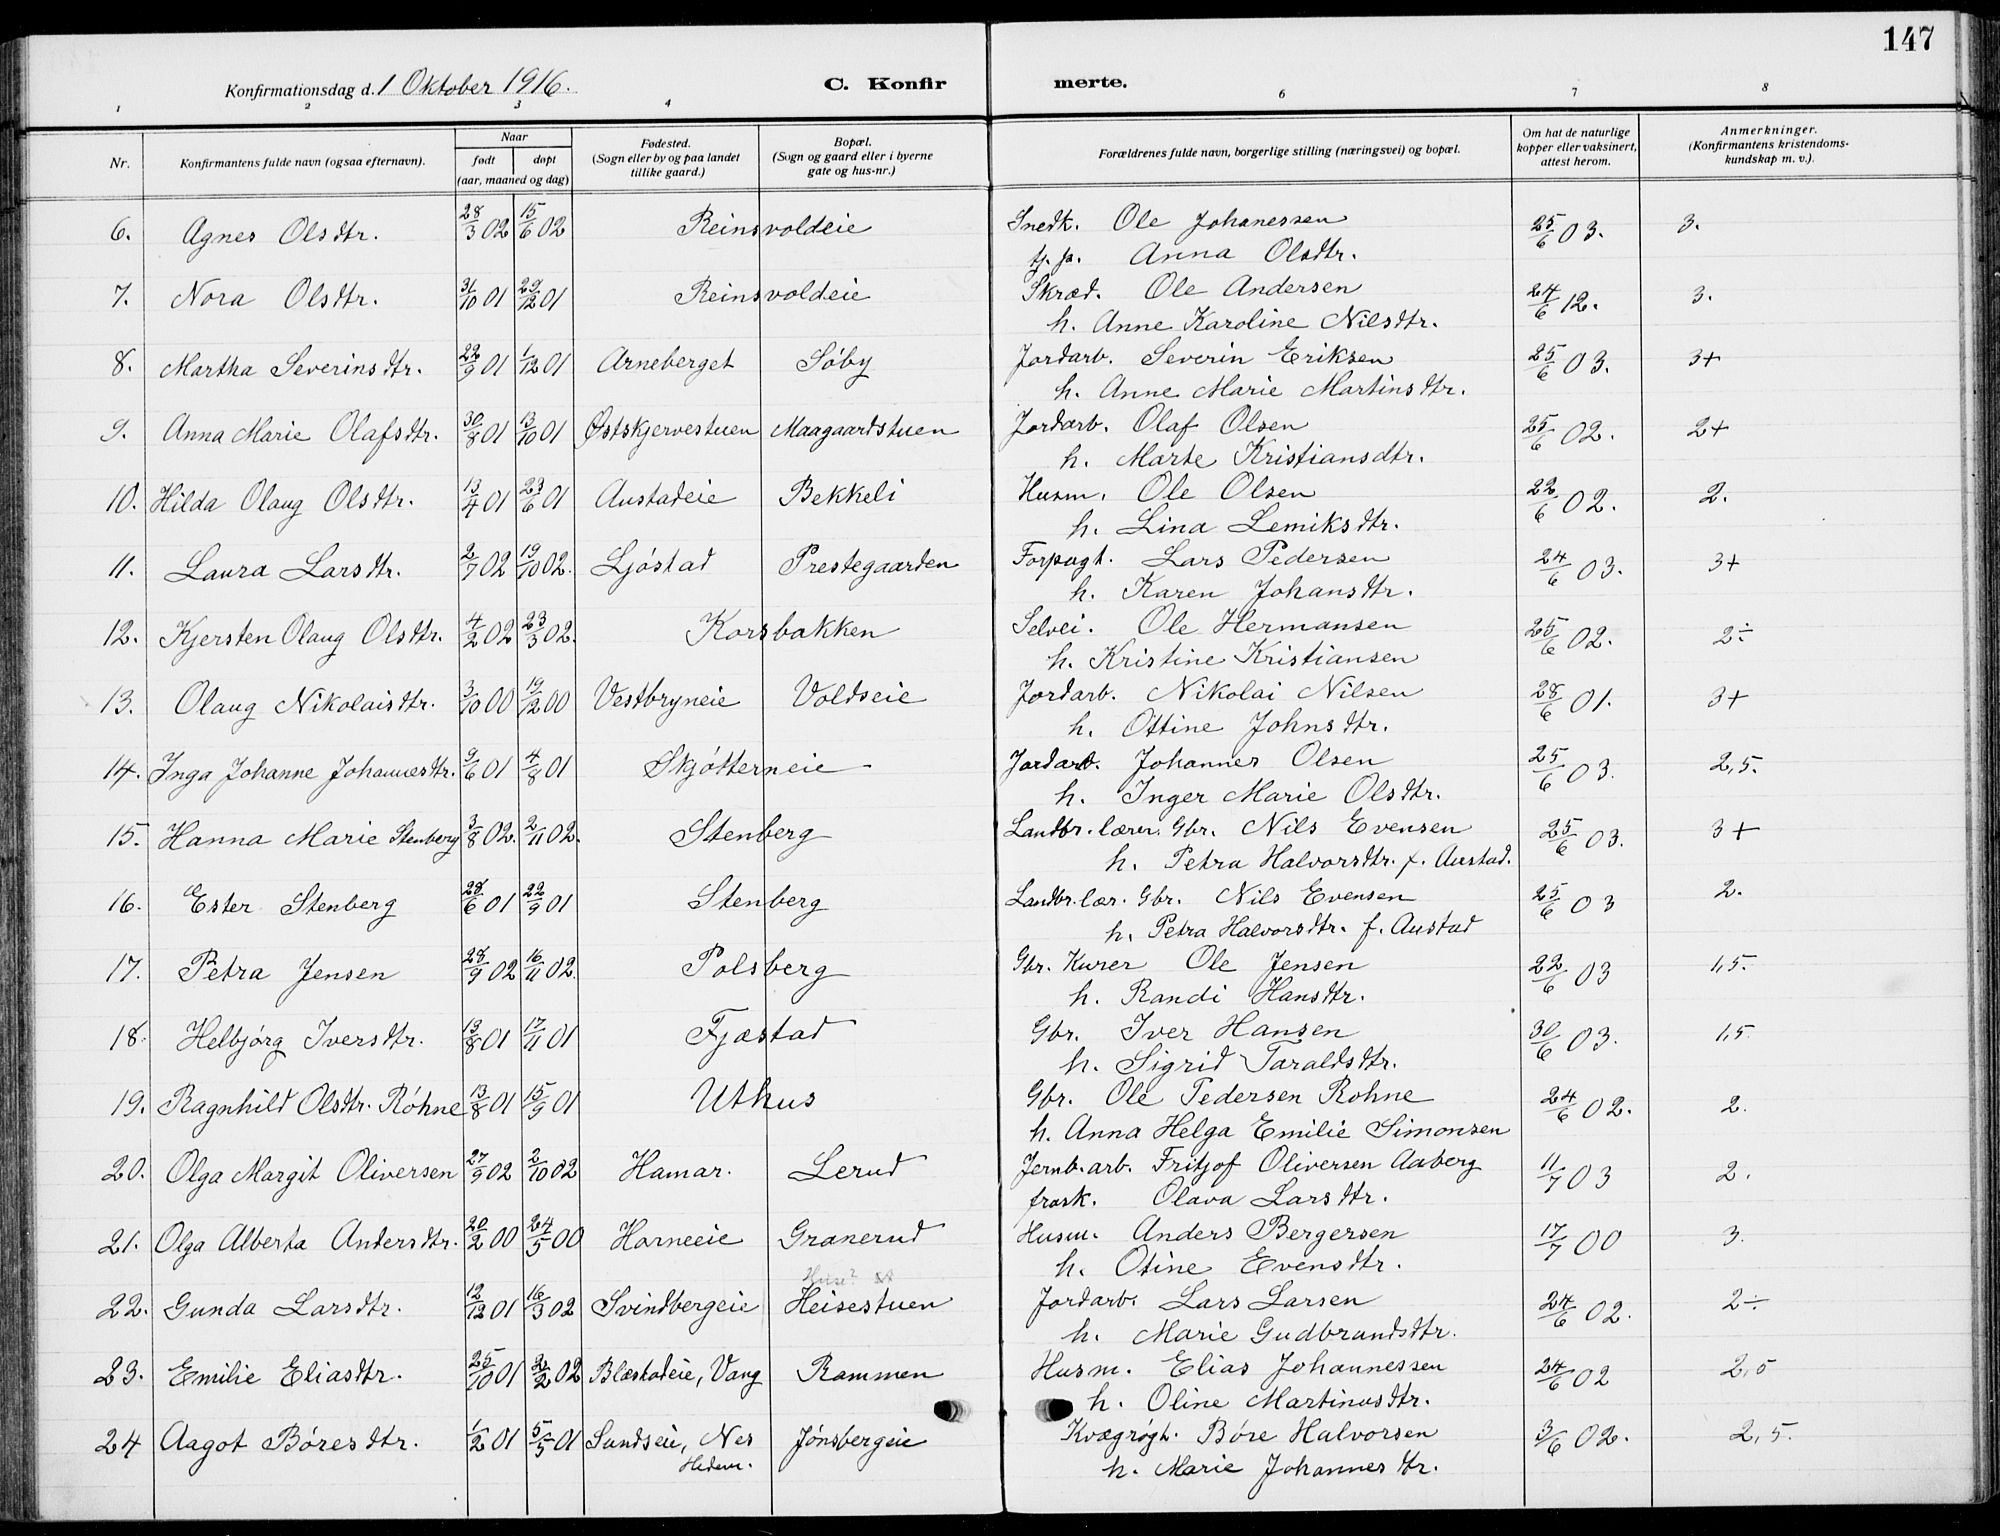 147
Konfirmationsdag d. 1 Oktober 1916. C. Konfirmerte.
1 2 3 4 6 7 8
Nr. Konfirmantens fulde navn (ogsaa efternavn). Naar født døpt (aar, maaned og dag) Fødested. (Sogn eller by og paa landet tillike gaard.) Bopæl. (Sogn og gaard eller i byerne gate og hus-nr.) Forældrenes fulde navn, borgerlige stilling (næringsvei) og bopæl. Om hat de naturlige kopper eller vaksinert, attest herom. Anmerkninger. (Konfirmantens kristendomskundskap m. v.).
6. Agnes Olsdtr. 28/3 02 15/6 02 Reinsvoldeie Snedk. Ole Johanessen 25/6 03. 3.
tj. p. Anna Olsdtr.
7. Nora Olsdtr. 31/10 01 29/12 01 Reinsvoldeie Skræd. Ole Andersen 24/6 12. 3.
h. Anne Karoline Nilsdtr.
8. Martha Severinsdtr. 22/9 01 1/12 01 Arneberget Søby Jordarb. Severin Eriksen 25/6 03. 3+
h. Anne Marie Martinsdtr.
9. Anna Marie Olafsdtr. 30/8 01 13/10 01 Østskjervestuen Maagaardstuen Jordarb. Olaf Olsen 25/6 02. 2+
h. Marte Kristiansdtr.
10. Hilda Olaug Olsdtr. 13/4 01 23/6 01 Austadeie Bekkeli Husm. Ole Olsen 22/6 02. 2.
h. Lina Lemiksdtr.
11. Laura Larsdtr. 2/7 02 19/10 02. Ljøstad Prestegaarden Forpagt. Lars Pedersen 24/6 03. 3+
h. Karen Johansdtr.
12. Kjersten Olaug Olsdtr. 4/2 02 23/3 02. Korsbakken Selvei. Ole Hermansen 25/6 02. 2÷
h. Kristine Kristiansen
13. Olaug Nikolaisdtr. 3/10 00 19/12 00 Vestbryneie Voldseie Jordarb. Nikolai Nilsen 28/6 01. 3+
h. Ottine Johnsdtr.
14. Inga Johanne Johannesdtr. 9/6 01 4/8 01 Skjøtterneie Jordarb. Johannes Olsen 25/6 03. 2,5.
h. Inger Marie Olsdtr.
15. Hanna Marie Stenberg 3/8 02. 2/11 02. Stenberg Landbr. lærer. Gbr. Nils Evensen 25/6 03. 3+
h. Petra Halvorsdtr. f. Austad.
16. Ester Stenberg 28/6 01 22/9 01 Stenberg Landbr. lær. Gbr. Nils Evensen 25/6 03 2.
h. Petra Halvorsdtr. f. Austad
17. Petra Jensen 28/9 02 16/11 02. Polsberg Gbr. Kurer Ole Jensen 22/6 03 1,5.
h. Randi Hansdtr.
18. Helbjørg Iversdtr. 13/8 01 17/11 01 Fjæstad Gbr. Iver Hansen 30/6 03. 1,5
h. Sigrid Taraldsdtr.
19. Ragnhild Olsdtr. Røhne 13/8 01 15/9 01 Uthus Gbr. Ole Pedersen Rohne 24/6 02. 2.
h. Anna Helga Emilie Simonsen
20. Olga Margit Oliversen 27/9 02 2/10 02 Hamar. Lerud Jernb. arb. Fritjof Oliversen Aaberg 11/7 03 2.
frask. Olava Larsdtr.
21. Olga Alberta Andersdtr. 20/2 00 24/5 00 Horneeie Granerud Husm. Anders Bergersen 17/7 00 3.
h. Otine Evensdtr.
22. Gunda Larsdtr. 12/12 01 16/3 02 Svindbergeie Heisestuen Jordarb. Lars Larsen 24/6 02. 2÷
h. Marie Gudbrandsdtr.
23. Emilie Eliasdtr. 25/10 01 2/2 02 Blæstadeie, Vang Rammen Husm. Elias Johannessen 24/6 02 2,5
h. Oline Martinusdtr.
24 Aagot Böresdtr. 1/2 01 5/5 01 Sundseie, Nes Hedem. Jønsbergeie Kvægrøgt. Børe Halvorsen 3/6 02. 2,5.
h. Marie Johannesdtr.